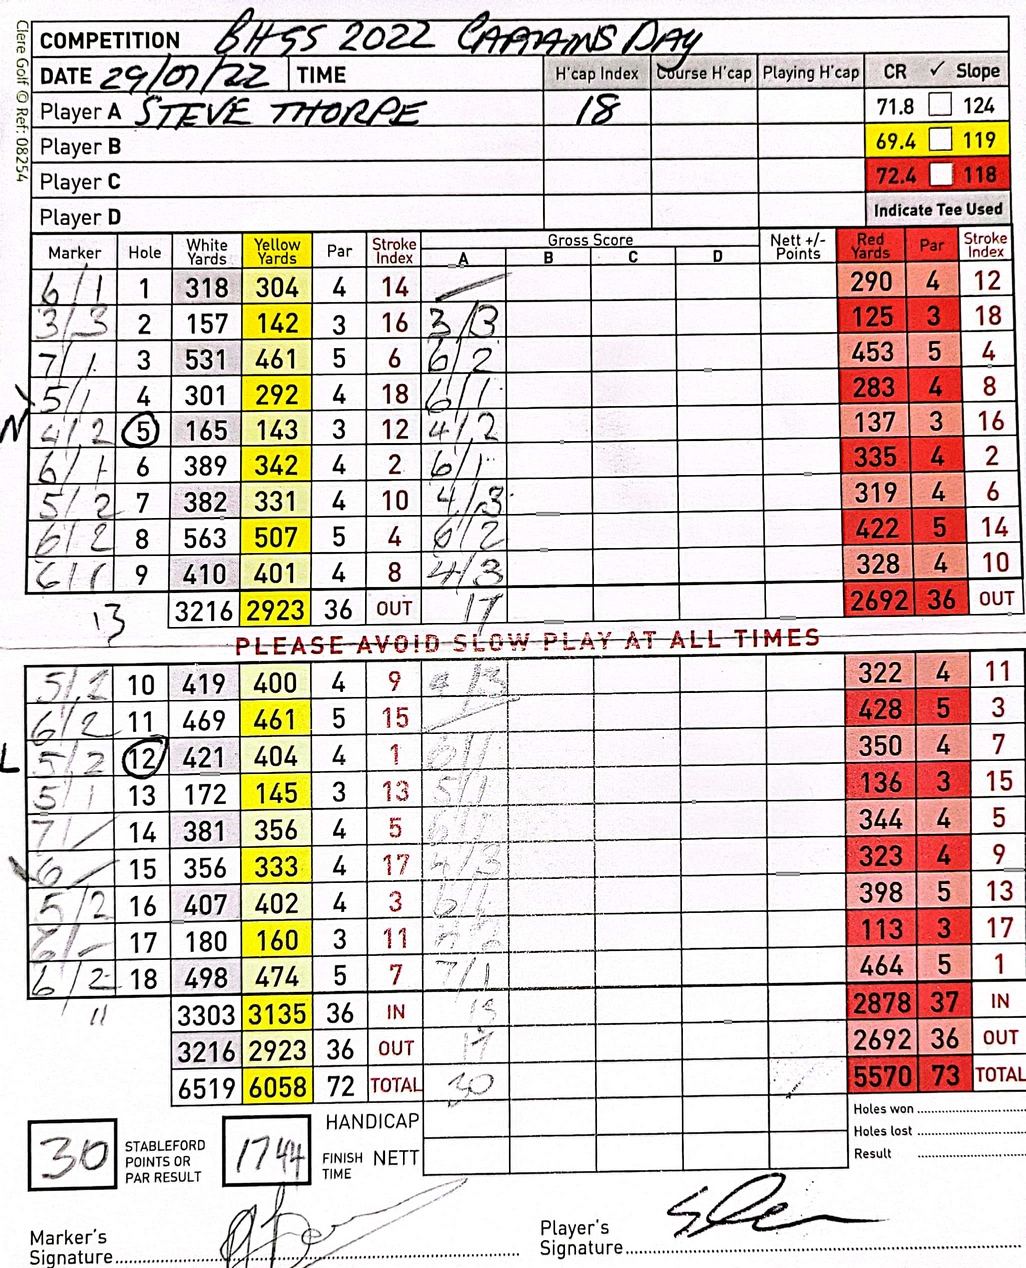 Clere Golf © Ref: 08254
COMPETITION BHGS 2022 CAPTAINS DAY
DATE 29/07/22 TIME H'cap Index Course H'cap Playing H'cap CR ✓ Slope
Player A STEVE THORPE 18 71.8 124
Player B 69.4 119
Player C 72.4 118
Player D Indicate Tee Used
Marker Hole White Yards Yellow Yards Par Stroke Index Gross Score A B C D Nett +/- Points Red Yards Par Stroke Index
6/1 1 318 304 4 14 — 290 4 12
3/3 2 157 142 3 16 3/3 125 3 18
7/1 3 531 461 5 6 6/2 453 5 4
5/1 4 301 292 4 18 6/1 283 4 8
N 4/2 5 165 143 3 12 4/2 137 3 16
6/1 6 389 342 4 2 6/1 335 4 2
5/2 7 382 331 4 10 4/3 319 4 6
6/2 8 563 507 5 4 6/2 422 5 14
6/1 9 410 401 4 8 4/3 328 4 10
13 3216 2923 36 OUT 17 2692 36 OUT
PLEASE AVOID SLOW PLAY AT ALL TIMES
5/2 10 419 400 4 9 4/3 322 4 11
6/2 11 469 461 5 15 — 428 5 3
L 5/2 12 421 404 4 1 350 4 7
5/1 13 172 145 3 13 5/1 136 3 15
7/— 14 381 356 4 5 6/1 344 4 5
6/— 15 356 333 4 17 4/3 323 4 9
5/2 16 407 402 4 3 6/1 398 5 13
6/— 17 180 160 3 11 113 3 17
6/2 18 498 474 5 7 7/1 464 5 1
11 3303 3135 36 IN 13 2878 37 IN
3216 2923 36 OUT 17 2692 36 OUT
6519 6058 72 TOTAL 30 5570 73 TOTAL
HANDICAP Holes won
30 STABLEFORD POINTS OR PAR RESULT 1744 FINISH TIME NETT Holes lost
Result
Marker's Signature
Player's Signature